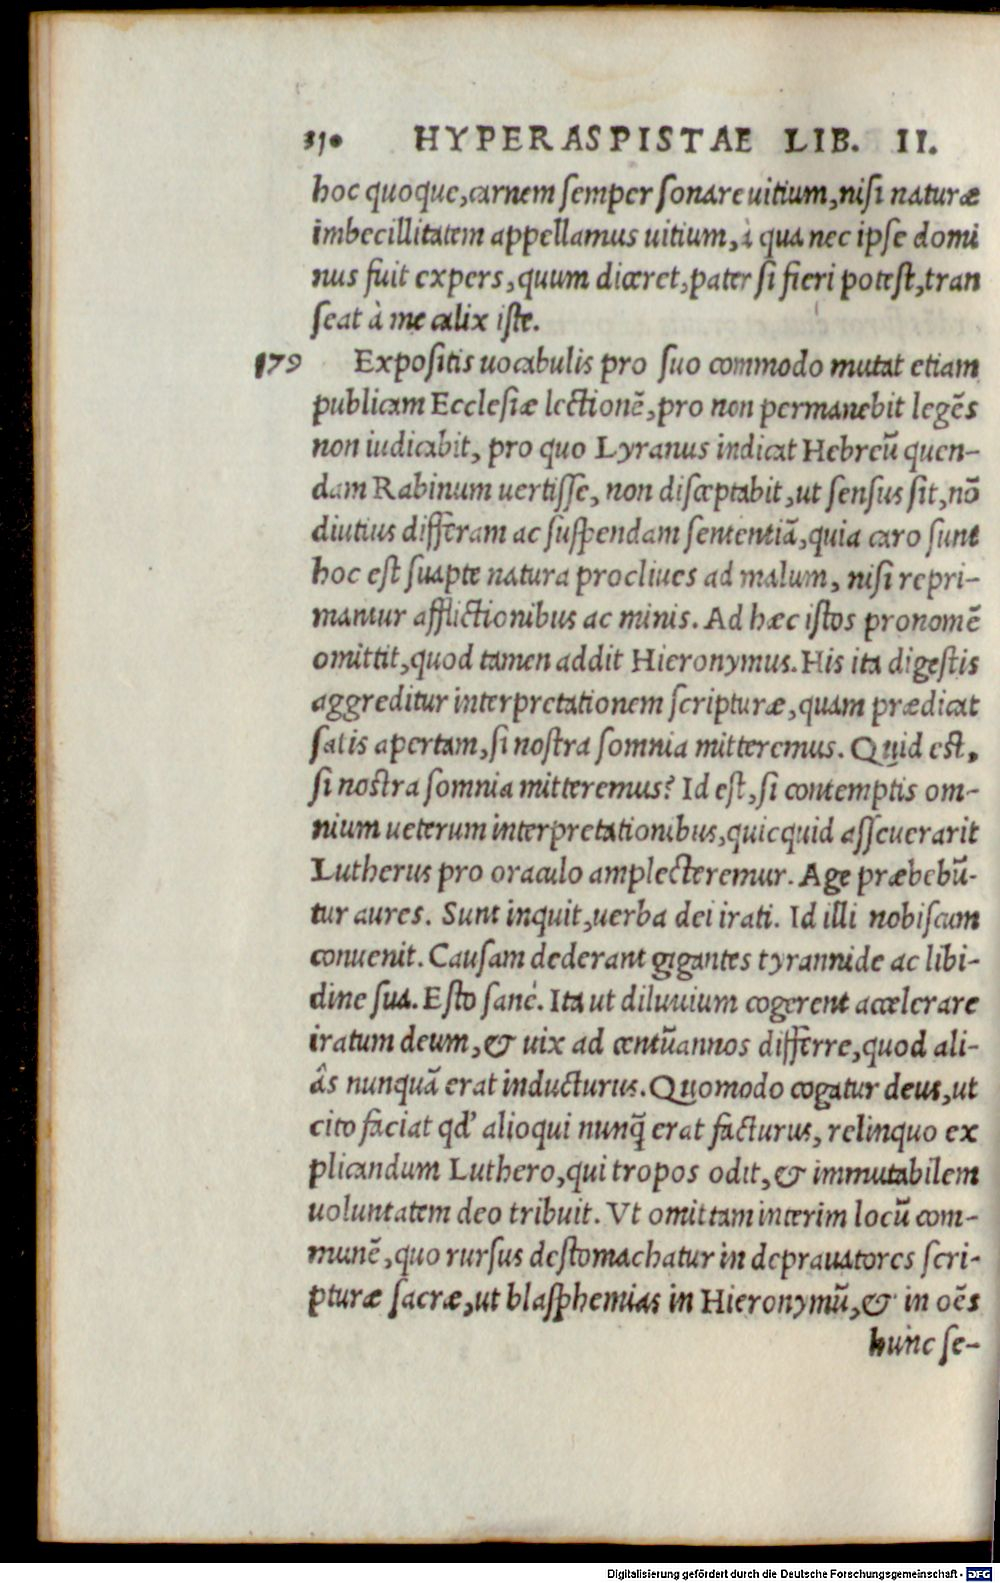 310 HYPERASPISTAE LIB. II.
hoc quoque, carnem semper sonare uitium, nisi naturæ
imbecillitatem appellamus uitium, à qua nec ipse domi
nus fuit expers, quum diceret, pater si fieri potest, tran
seat à me calix iste.
179 Expositis uocabulis pro suo commodo mutat etiam
publicam Ecclesiæ lectionē, pro non permanebit legēs
non iudicabit, pro quo Lyranus indicat Hebreū quen-
dam Rabinum uertisse, non disceptabit, ut sensus sit, nō
diutius differam ac suspendam sententiā, quia caro sunt
hoc est suapte natura procliues ad malum, nisi repri-
mantur afflictionibus ac minis. Ad hæc istos pronomē
omittit, quod tamen addit Hieronymus. His ita digestis
aggreditur interpretationem scripturæ, quam prædicat
satis apertam, si nostra somnia mitteremus. Quid est,
si nostra somnia mitteremus? Id est, si contemptis om-
nium ueterum interpretationibus, quicquid asseuerarit
Lutherus pro oraculo amplecteremur. Age præbebū-
tur aures. Sunt inquit, uerba dei irati. Id illi nobiscum
conuenit. Causam dederant gigantes tyrannide ac libi-
dine sua. Esto sanè. Ita ut diluuium cogerent accelerare
iratum deum, & uix ad centū annos differre, quod ali-
âs nunquā erat inducturus. Quomodo cogatur deus, ut
cito faciat qd' alioqui nunq̄ erat facturus, relinquo ex
plicandum Luthero, qui tropos odit, & immutabilem
uoluntatem deo tribuit. Vt omittam interim locū com-
munē, quo rursus destomachatur in deprauatores scri-
pturæ sacræ, ut blasphemias in Hieronymū, & in oēs
hunc se-
Digitalisierung gefördert durch die Deutsche Forschungsgemeinschaft - DFG